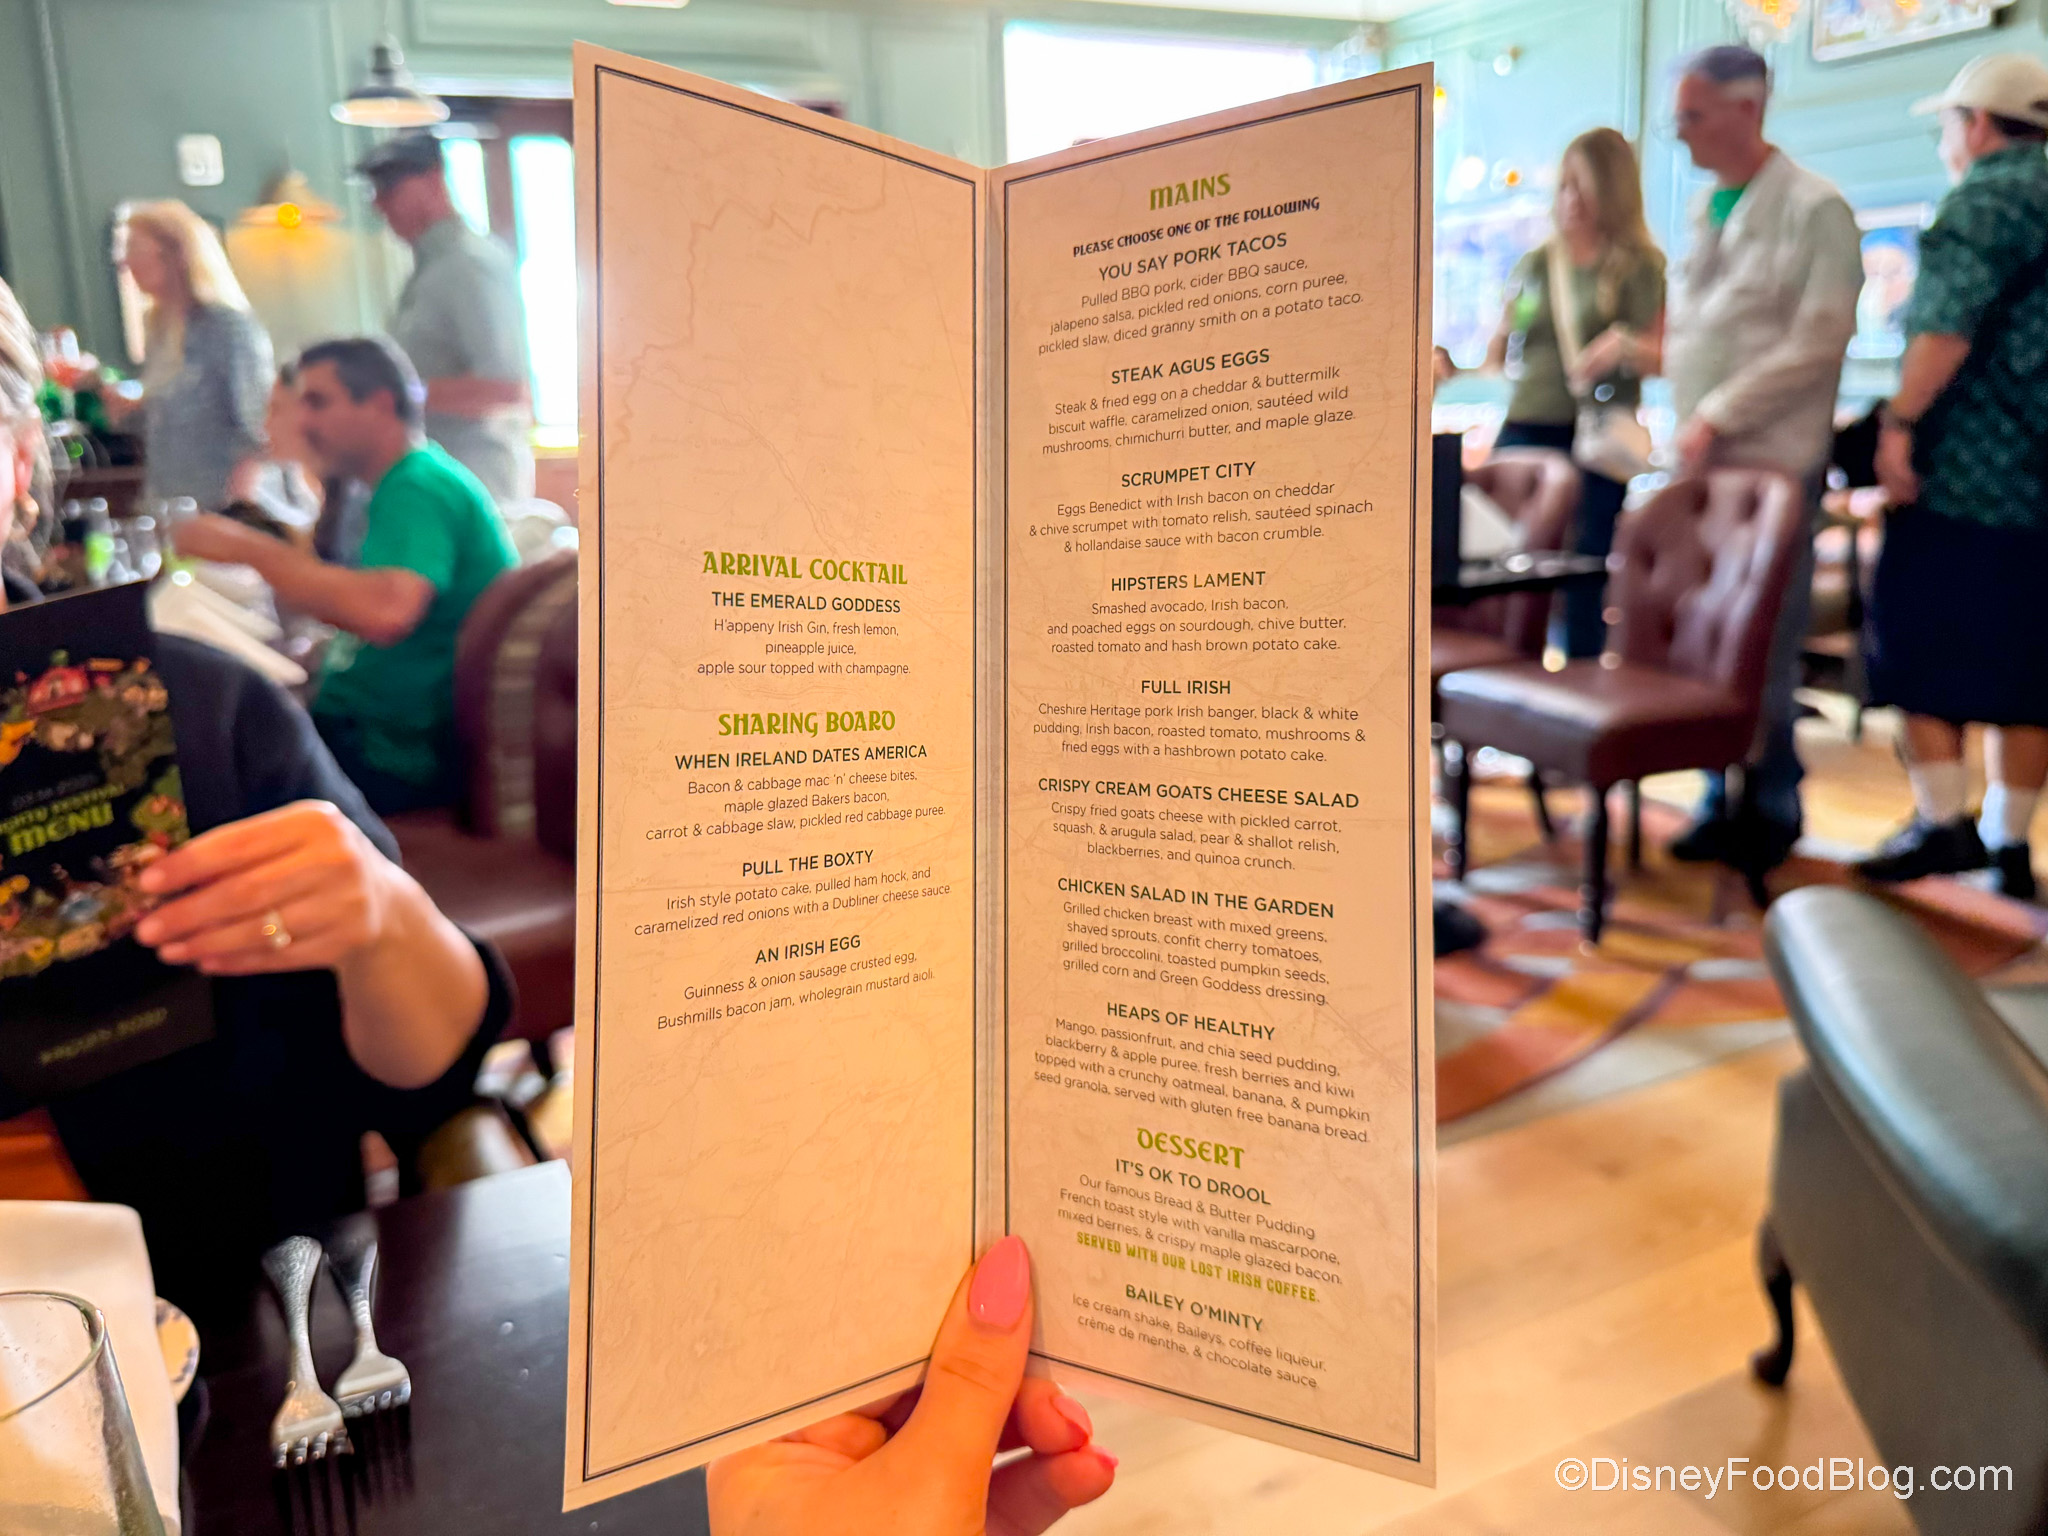 ARRIVAL COCKTAIL
THE EMERALD GODDESS
H'appeny Irish Gin, fresh lemon,
pineapple juice,
apple sour topped with champagne.
SHARING BOARD
WHEN IRELAND DATES AMERICA
Bacon & cabbage mac 'n' cheese bites,
maple glazed Bakers bacon,
carrot & cabbage slaw, pickled red cabbage puree.
PULL THE BOXTY
Irish style potato cake, pulled ham hock, and
caramelized red onions with a Dubliner cheese sauce.
AN IRISH EGG
Guinness & onion sausage crusted egg,
Bushmills bacon jam, wholegrain mustard aioli.
MAINS
PLEASE CHOOSE ONE OF THE FOLLOWING
YOU SAY PORK TACOS
Pulled BBQ pork, cider BBQ sauce,
jalapeno salsa, pickled red onions, corn puree,
pickled slaw, diced granny smith on a potato taco.
STEAK AGUS EGGS
Steak & fried egg on a cheddar & buttermilk
biscuit waffle, caramelized onion, sautéed wild
mushrooms, chimichurri butter, and maple glaze.
SCRUMPET CITY
Eggs Benedict with Irish bacon on cheddar
& chive scrumpet with tomato relish, sautéed spinach
& hollandaise sauce with bacon crumble.
HIPSTERS LAMENT
Smashed avocado, Irish bacon,
and poached eggs on sourdough, chive butter,
roasted tomato and hash brown potato cake.
FULL IRISH
Cheshire Heritage pork Irish banger, black & white
pudding, Irish bacon, roasted tomato, mushrooms &
fried eggs with a hashbrown potato cake.
CRISPY CREAM GOATS CHEESE SALAD
Crispy fried goats cheese with pickled carrot,
squash, & arugula salad, pear & shallot relish,
blackberries, and quinoa crunch.
CHICKEN SALAD IN THE GARDEN
Grilled chicken breast with mixed greens,
shaved sprouts, confit cherry tomatoes,
grilled broccolini, toasted pumpkin seeds,
grilled corn and Green Goddess dressing.
HEAPS OF HEALTHY
Mango, passionfruit, and chia seed pudding,
blackberry & apple puree, fresh berries and kiwi
topped with a crunchy oatmeal, banana, & pumpkin
seed granola, served with gluten free banana bread.
DESSERT
IT'S OK TO DROOL
Our famous Bread & Butter Pudding
French toast style with vanilla mascarpone,
mixed berries, & crispy maple glazed bacon.
SERVED WITH OUR LOST IRISH COFFEE.
BAILEY O'MINTY
Ice cream shake, Baileys, coffee liqueur,
crème de menthe, & chocolate sauce.
MENU
©DisneyFoodBlog.com